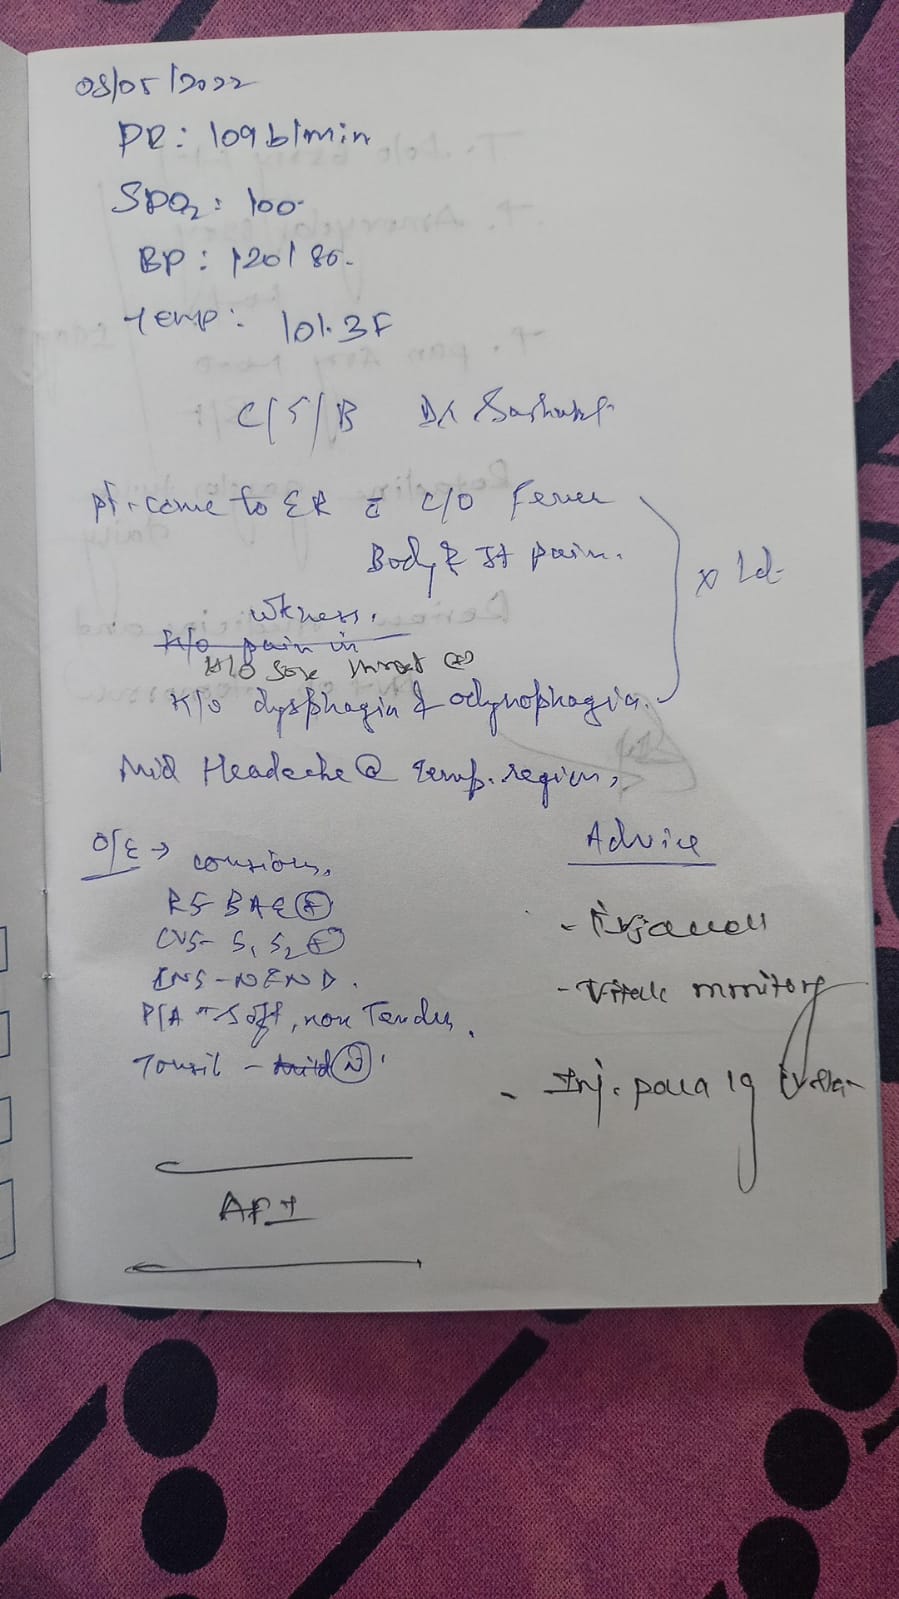 08/05/2022
PR: 109 b/min
SPO2: 100
BP: 120/80
Temp: 101.3F
C/S/B Dr
pt. come to ER c̄ c/o Fever
Body & Jt pain.
wkness.
H/o pain in
H/o Sore throat (+)
H/o dysphagia & odynophagia.
x 1d
Mid Headache @ temp. region,
O/E → consious,
RS- BAE (+)
CVS- S1 S2 (+)
CNS - NFND.
P/A - Soft, non Tender.
Tonsil - mild (N)
Advice
- Vitals monitoring
- Inj. para 1g